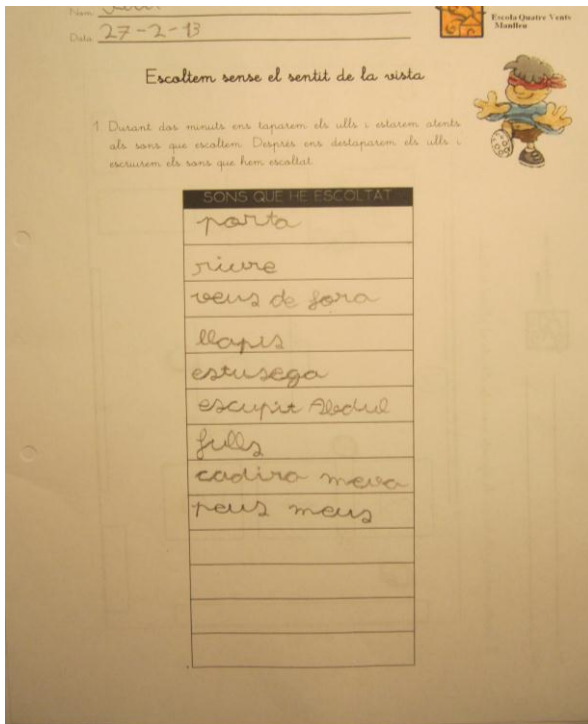 Nom
Escola Quatre Vents
Manlleu
Data 27-2-13
Escoltem sense el sentit de la vista
1. Durant dos minuts ens taparem els ulls i estarem atents
als sons que escoltem. Després ens destaparem els ulls i
escriurem els sons que hem escoltat.
SONS QUE HE ESCOLTAT
porta
riure
veus de fora
llapis
estusega
escupit Abdul
fulls
cadira meva
peus meus